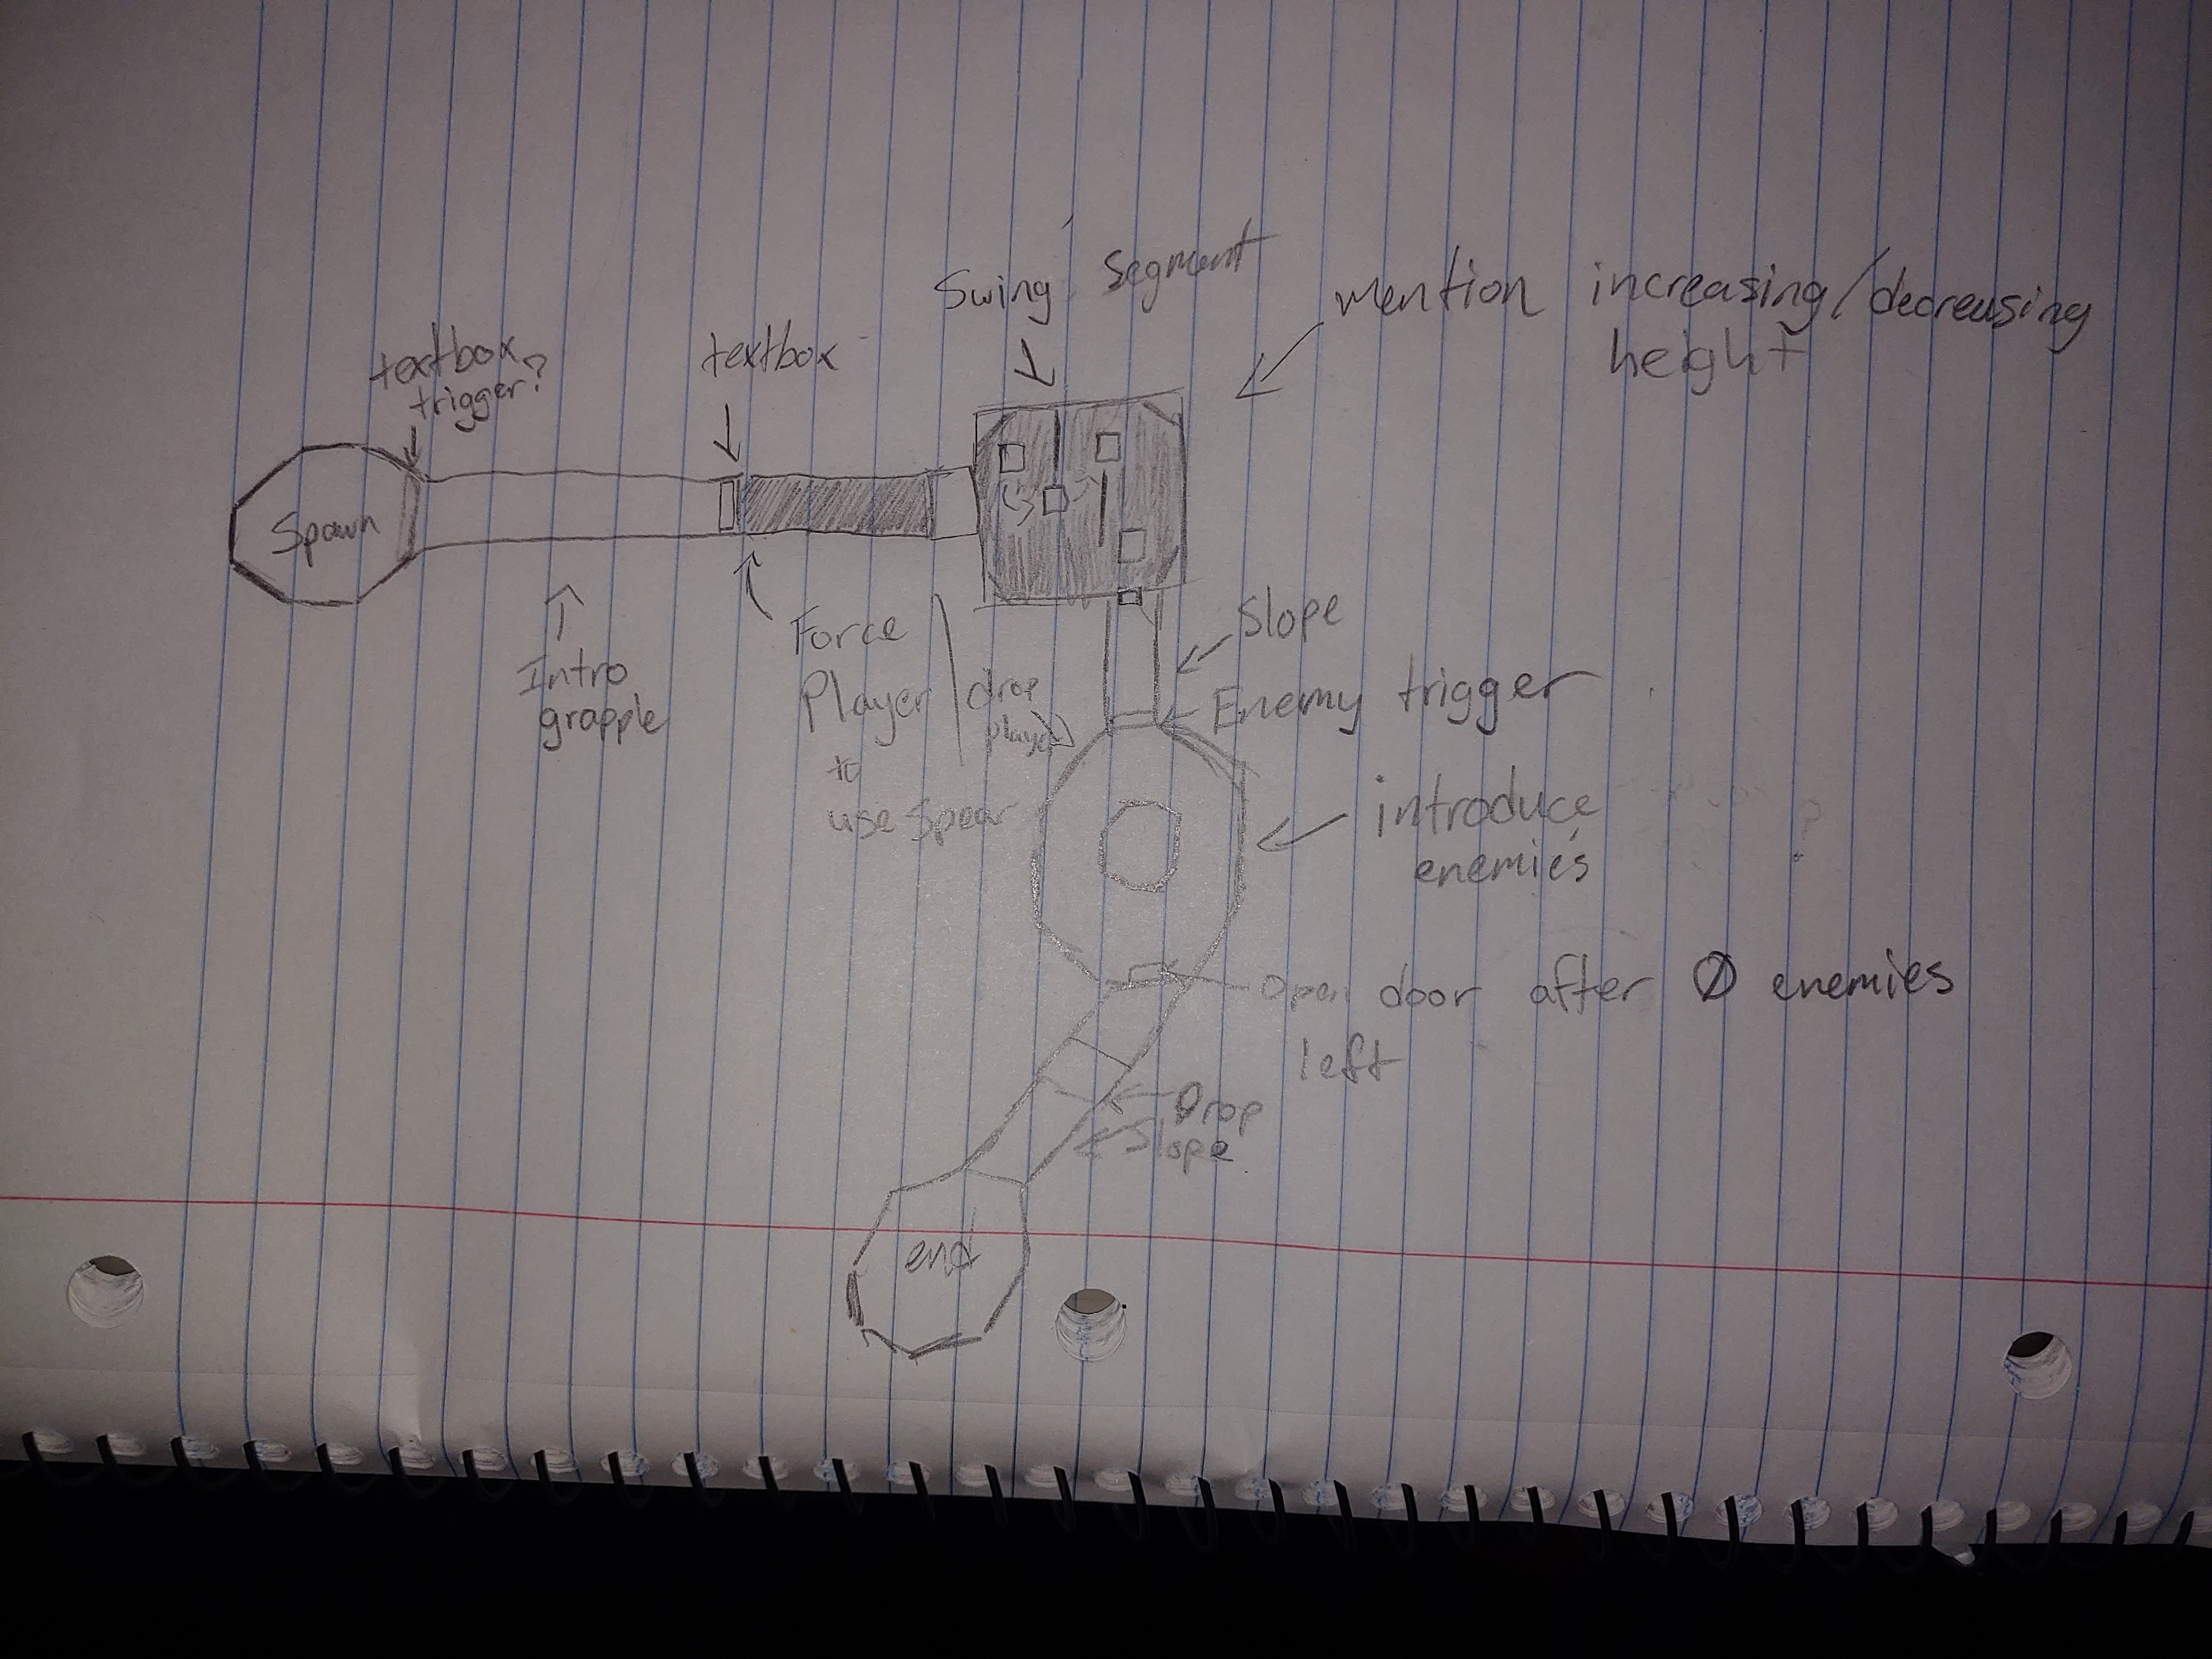 Swing Segment
mention increasing/decreasing
height
textbox
trigger?
textbox
Spawn
Intro
grapple
Force
Player
to
use Spear
drop
player
Slope
Enemy trigger
introduce
enemies
Open door after Ø enemies
left
Drop
Slope
end